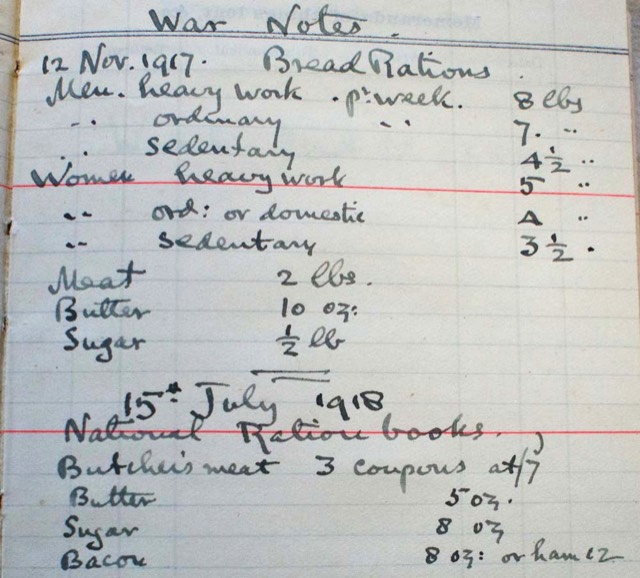 War Notes.
12 Nov. 1917. Bread Rations.
Men. heavy work . pr. week. 8 lbs
" ordinary " 7. "
" sedentary 4 1/2 "
Women heavy work 5 "
" ord: or domestic 4 "
" sedentary 3 1/2 "
Meat 2 lbs.
Butter 10 oz:
Sugar 1/2 lb
15th July 1918
National Ration books.
Butcher's meat 3 coupons at /7
Butter 5 oz.
Sugar 8 oz
Bacon 8 oz: or ham 12